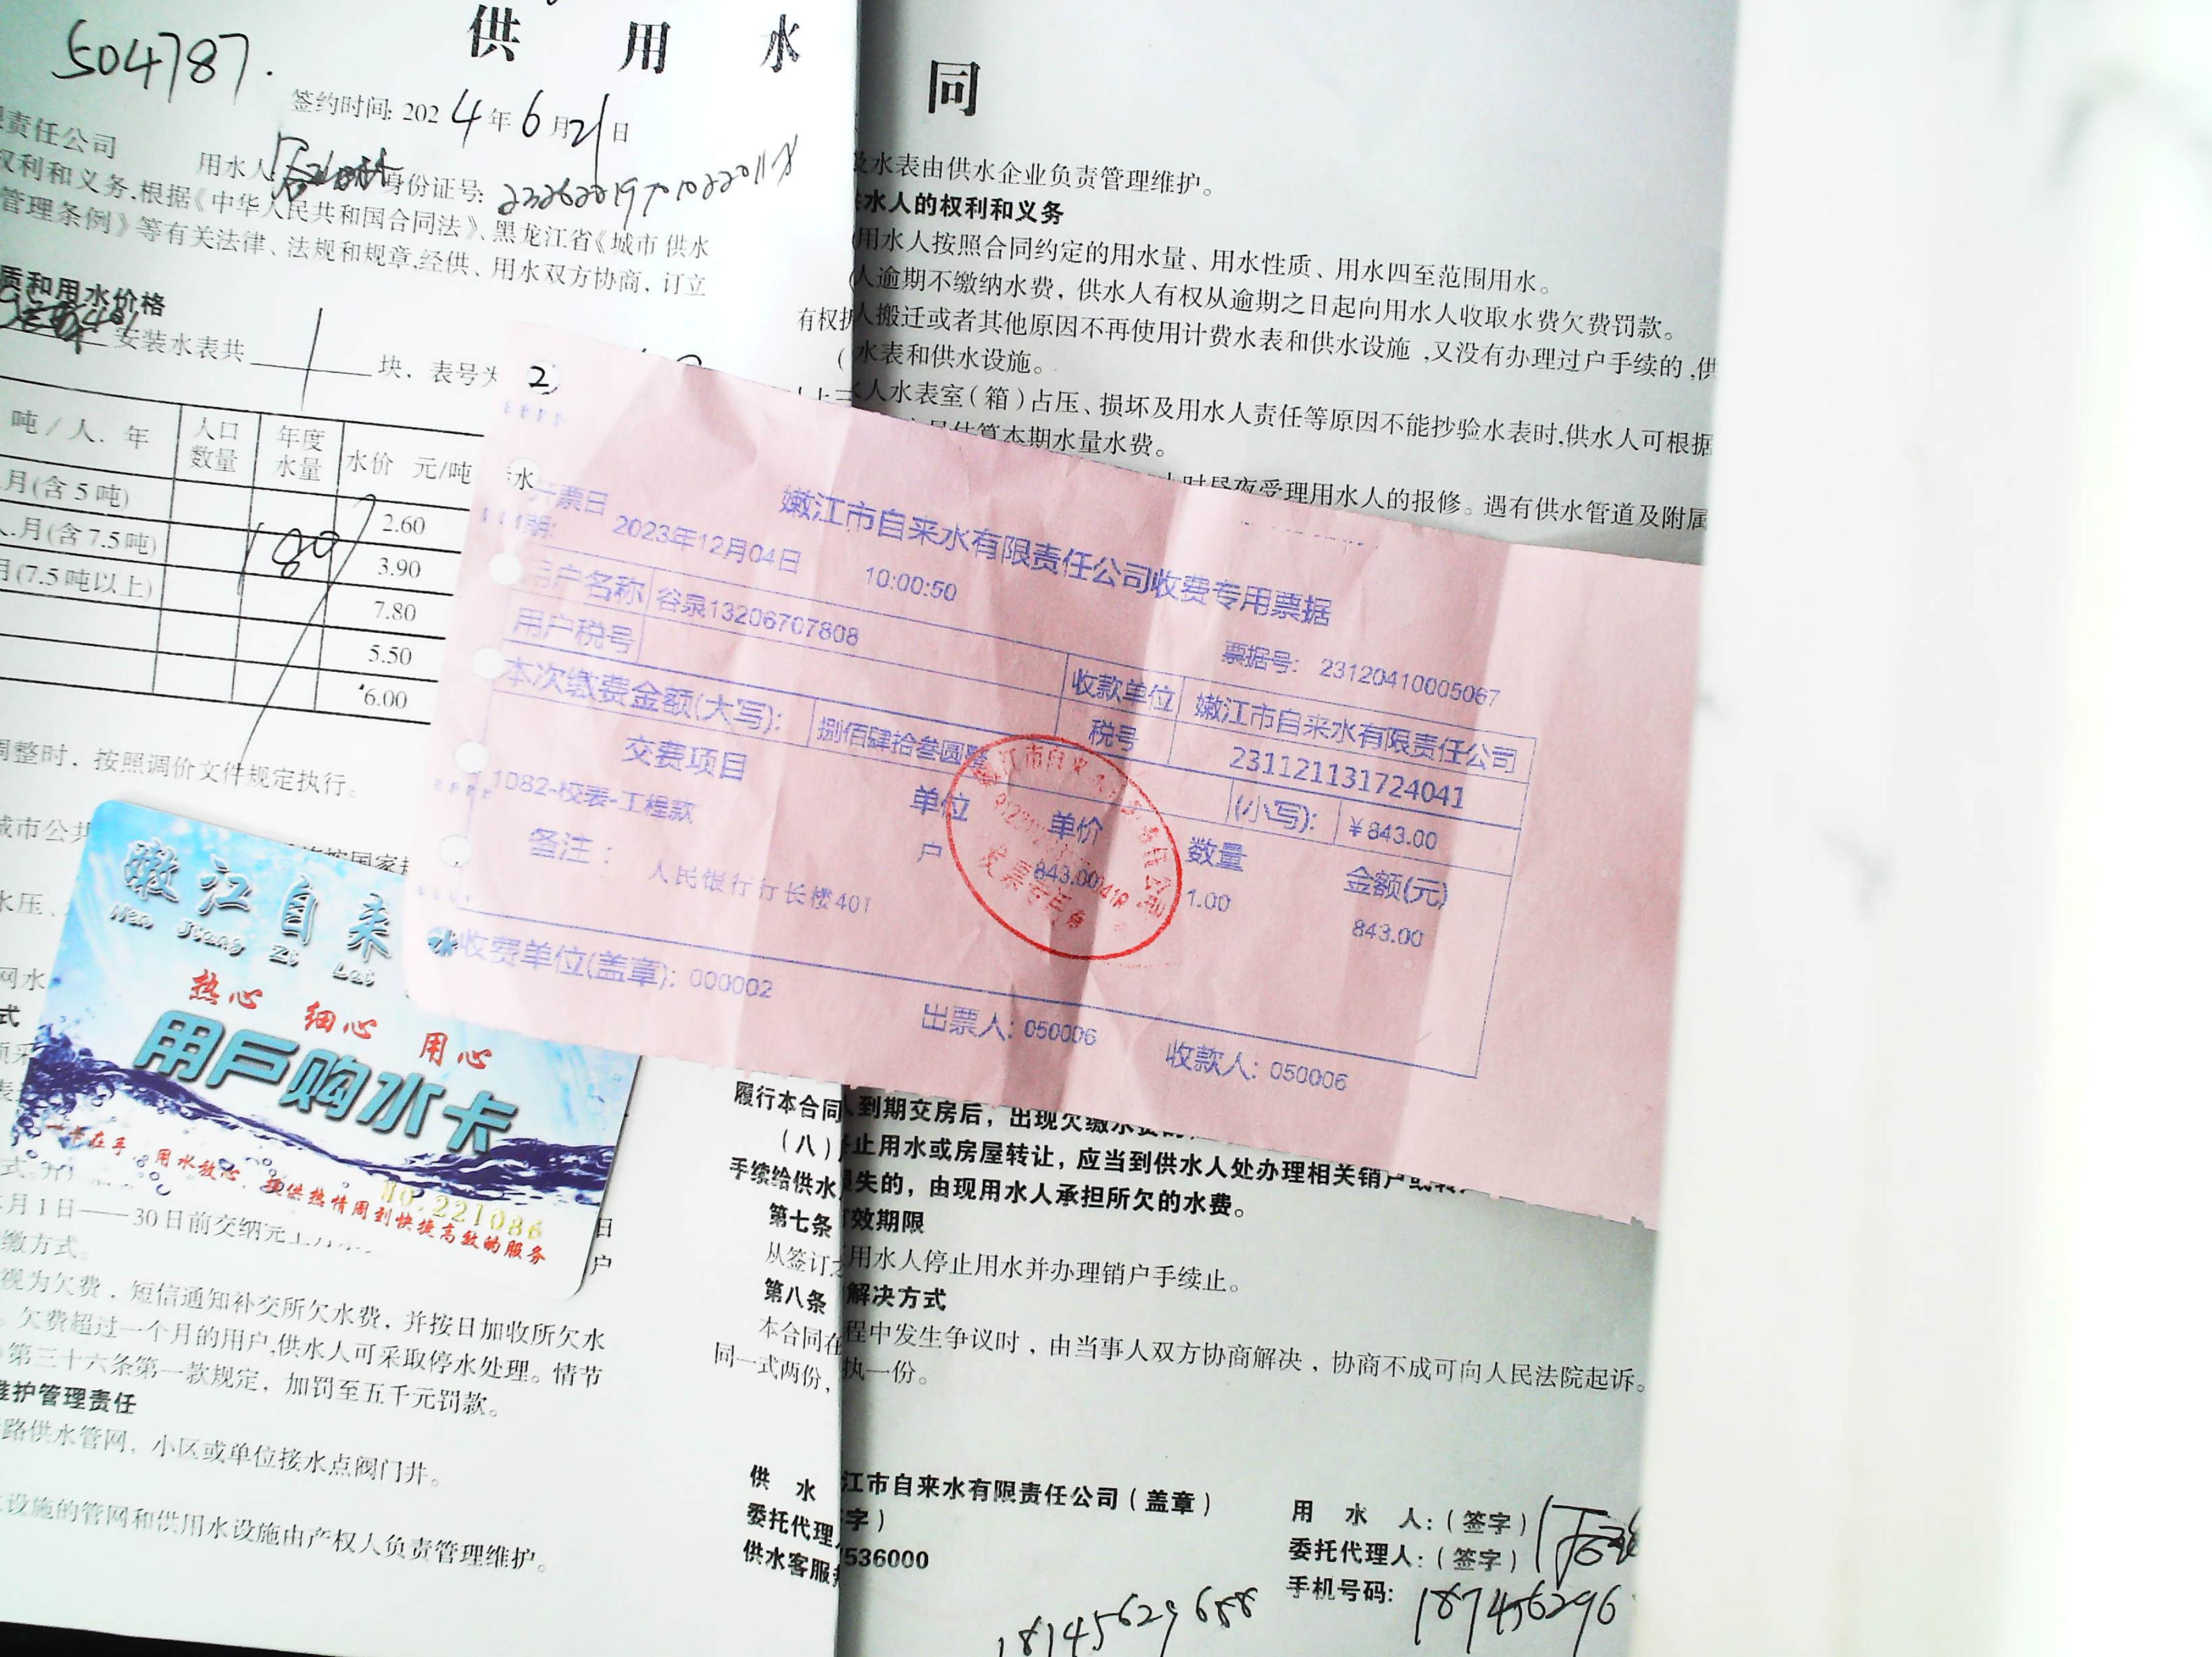 供 用 水
504787.
签约时间: 2024年6月21日
责任公司
用水人
身份证号:
权利和义务,根据《中华人民共和国合同法》、黑龙江省《城市 供水
管理条例》等有关法律、法规和规章,经供、用水双方协商, 订立
质和用水价格
安装水表共
块, 表号为
吨/人. 年
人口数量
年度水量
水价 元/吨
月(含 5 吨)
2.60
人.月(含 7.5吨)
180
3.90
月(7.5 吨以上)
7.80
5.50
6.00
调整时, 按照调价文件规定执行。
城市公共
水压、
网水
式
月 1 日——30 日前交纳
缴方式。
视为欠费, 短信通知补交所欠水费, 并按日加收所欠水
欠费超过一个月的用户,供水人可采取停水处理。情节
第三十六条第一款规定, 加罚至五千元罚款。
维护管理责任
路供水管网, 小区或单位接水点阀门井。
设施的管网和供用水设施由产权人负责管理维护。
嫩江自来
Nen Jiang Zi Lai
热心 细心 用心
用户购水卡
一卡在手, 用水放心, 提供热情周到快捷高效的服务
NO.221086
同
及水表由供水企业负责管理维护。
水人的权利和义务
用水人按照合同约定的用水量、用水性质、用水四至范围用水。
人逾期不缴纳水费, 供水人有权从逾期之日起向用水人收取水费欠费罚款。
有权
人搬迁或者其他原因不再使用计费水表和供水设施 ,又没有办理过户手续的 ,供
水表和供水设施。
人水表室(箱)占压、损坏及用水人责任等原因不能抄验水表时,供水人可根据
估算本期水量水费。
时昼夜受理用水人的报修。遇有供水管道及附属
2
嫩江市自来水有限责任公司收费专用票据
开票日期: 2023年12月04日 10:00:50
票据号: 23120410005067
用户名称 谷泉13206707808
收款单位 嫩江市自来水有限责任公司
用户税号
税号 231121131724041
本次缴费金额(大写): 捌佰肆拾叁圆整
(小写): ¥843.00
交费项目 单位 单价 数量 金额(元)
1082-校表-工程款 户 843.00 1.00 843.00
备注: 人民银行行长楼401
收费单位(盖章): 000002
出票人: 050006
收款人: 050006
履行本合同
到期交房后, 出现欠缴水费的
(八)
止用水或房屋转让, 应当到供水人处办理相关销户或
手续给供水
失的, 由现用水人承担所欠的水费。
第七条
效期限
从签订
用水人停止用水并办理销户手续止。
第八条
解决方式
本合同在
程中发生争议时, 由当事人双方协商解决, 协商不成可向人民法院起诉。
同一式两份,
执一份。
供 水
江市自来水有限责任公司(盖章)
委托代理
字)
供水客服
536000
用 水 人:(签字)
委托代理人:(签字)
手机号码: 187456296
18145629688